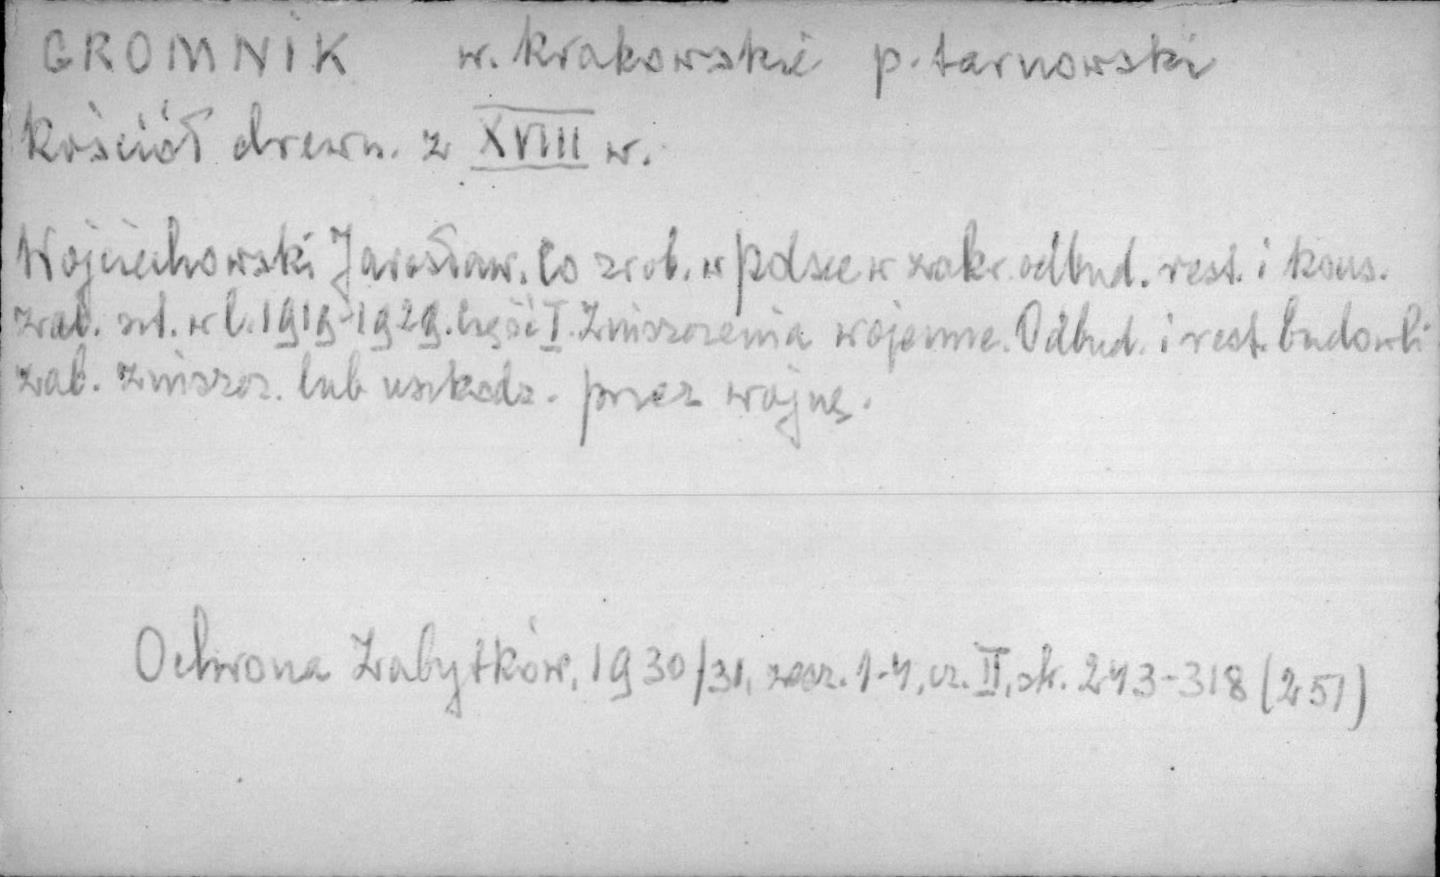 GROMNIK w. krakowskie p. tarnowski
Kościół drewn. z XVIII w.
Wojciechowski Jarosław. Co zrob. w Polsce w zakr. odbud. rest. i kons.
zab. szt. w l. 1919-1929. Część I. Zniszczenia wojenne. Odbud. i rest. budowli
zab. zniszcz. lub uszkodz. przez wojnę.
Ochrona Zabytków, 1930/31, zesz. 1-4, cz. II, str. 243-318 (251)